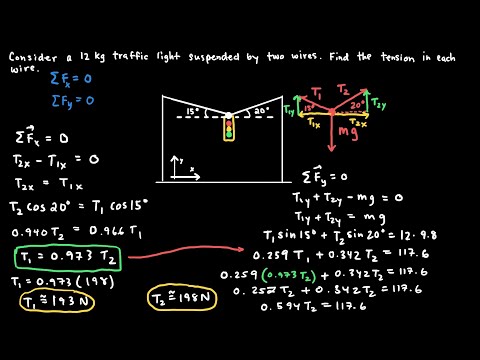 Consider a 12 kg traffic light suspended by two wires. Find the tension in each
wire.
ΣFx = 0
ΣFy = 0
15°
20°
y
x
T1
T2
T1y
15°
20°
T2y
T1x
T2x
mg
ΣF⃗x = 0
T2x - T1x = 0
T2x = T1x
T2 cos 20° = T1 cos 15°
0.940 T2 = 0.966 T1
T1 = 0.973 T2
T1 = 0.973 (198)
T1 ≅ 193 N
T2 ≅ 198 N
ΣF⃗y = 0
T1y + T2y - mg = 0
T1y + T2y = mg
T1 sin 15° + T2 sin 20° = 12 · 9.8
0.259 T1 + 0.342 T2 = 117.6
0.259 (0.973 T2) + 0.342 T2 = 117.6
0.252 T2 + 0.342 T2 = 117.6
0.594 T2 = 117.6